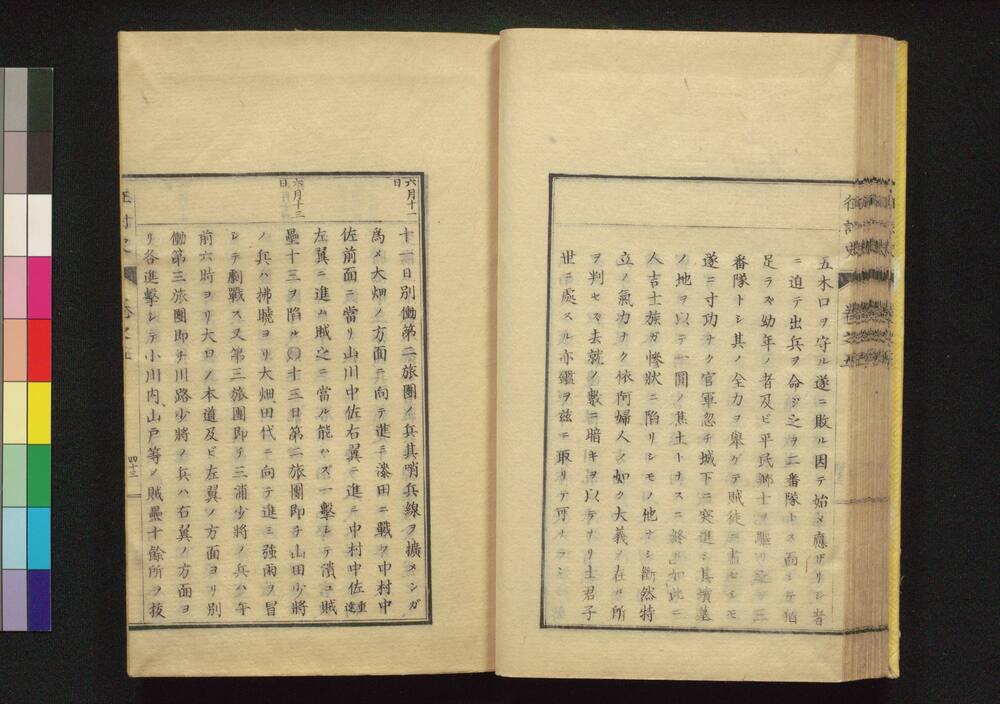 五木口ヲ守ル遂ニ敗ル因テ始メ應ザリシ者
ニ迫テ出兵ヲ命ジ之ヲ二番隊トス而シテ猶
足ラズ幼年ノ者及ビ平民郷士ヲ驅リ之ヲ三
番隊トシ其ノ全力ヲ擧ゲテ賊徒ニ盡セシモ
遂ニ寸功ナク官軍忽チ城下ニ突進シ其墳墓
ノ地ヲ以テ一圓ノ焦土トナスニ終ル如此ニ
人吉士族ガ慘狀ニ陷リシモノ他ナシ斷然特
立ノ氣力ナク依阿婦人ノ如ク大義ノ在ル所
ヲ判セズ去就ノ數ニ暗キヲ以テナリ士君子
世ニ處スル亦鑑ヲ茲ニ取リテ可ナラン
六月十一日
十一日別働第二旅團ノ兵其哨兵線ヲ擴メンガ
爲メ大畑ノ方面ニ向テ進ミ漆田ニ戰フ中村中
佐前面ニ當リ山川中佐右翼ニ進ミ中村中佐重遠
左翼ニ進ム賊之ニ當ル能ハズ一擊シテ潰ユ賊
六月十三日
壘十三ヲ陷ル○十三日第二旅團即チ山田少將
ノ兵ハ拂曉ヨリ大畑田代ニ向テ進ミ強雨ヲ冒
シテ劇戰ス又第三旅團即チ三浦少將ノ兵ハ午
前六時ヨリ大口ノ本道及ビ左翼ノ方面ヨリ別
働第三旅團即チ川路少將ノ兵ハ右翼ノ方面ヨ
リ各進擊シテ小川內、山戸等ノ賊壘十餘所ヲ拔
四十三